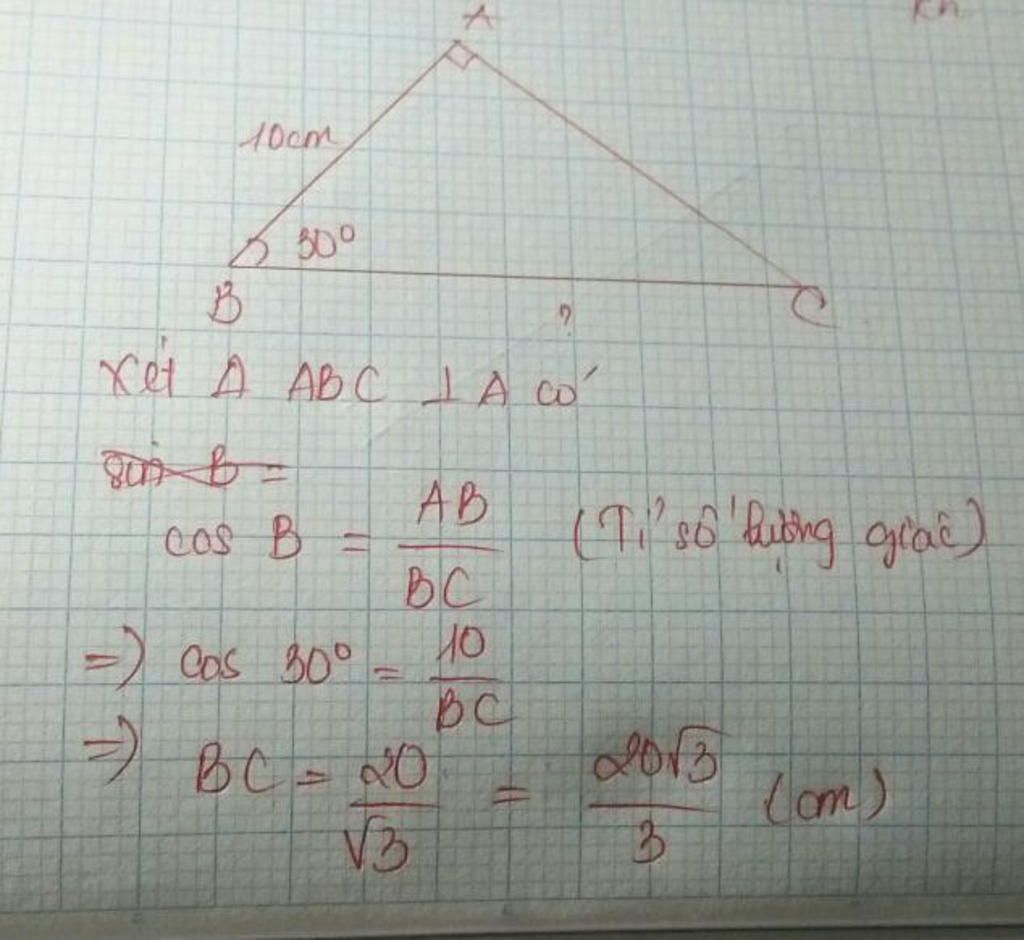 A
10cm
30°
B
C
?
Xét Δ ABC ⊥ A có
cos B = AB/BC (Tỉ số lượng giác)
=> cos 30° = 10/BC
=> BC = 20/√3 = 20√3/3 (cm)